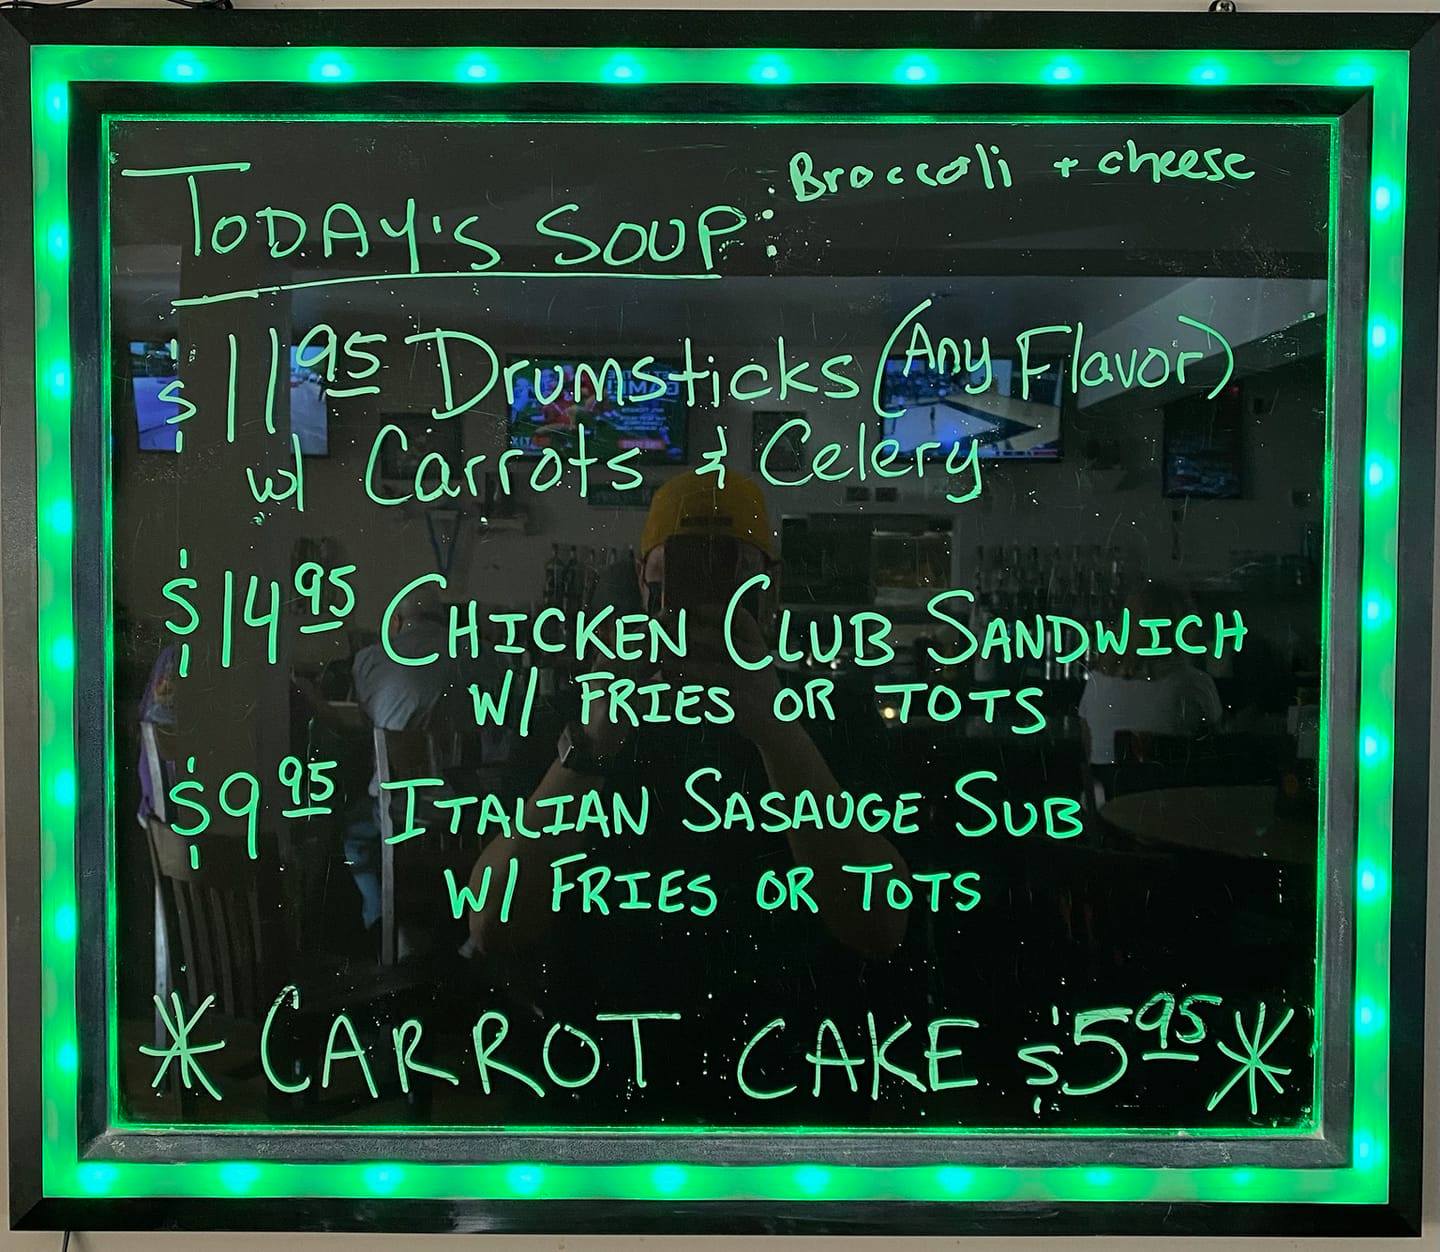 TODAY'S SOUP: Broccoli + cheese
$11.95 Drumsticks (Any Flavor)
w/ Carrots & Celery
$14.95 CHICKEN CLUB SANDWICH
W/ FRIES OR TOTS
$9.95 ITALIAN SASAUGE SUB
W/ FRIES OR TOTS
* CARROT CAKE $5.95 *